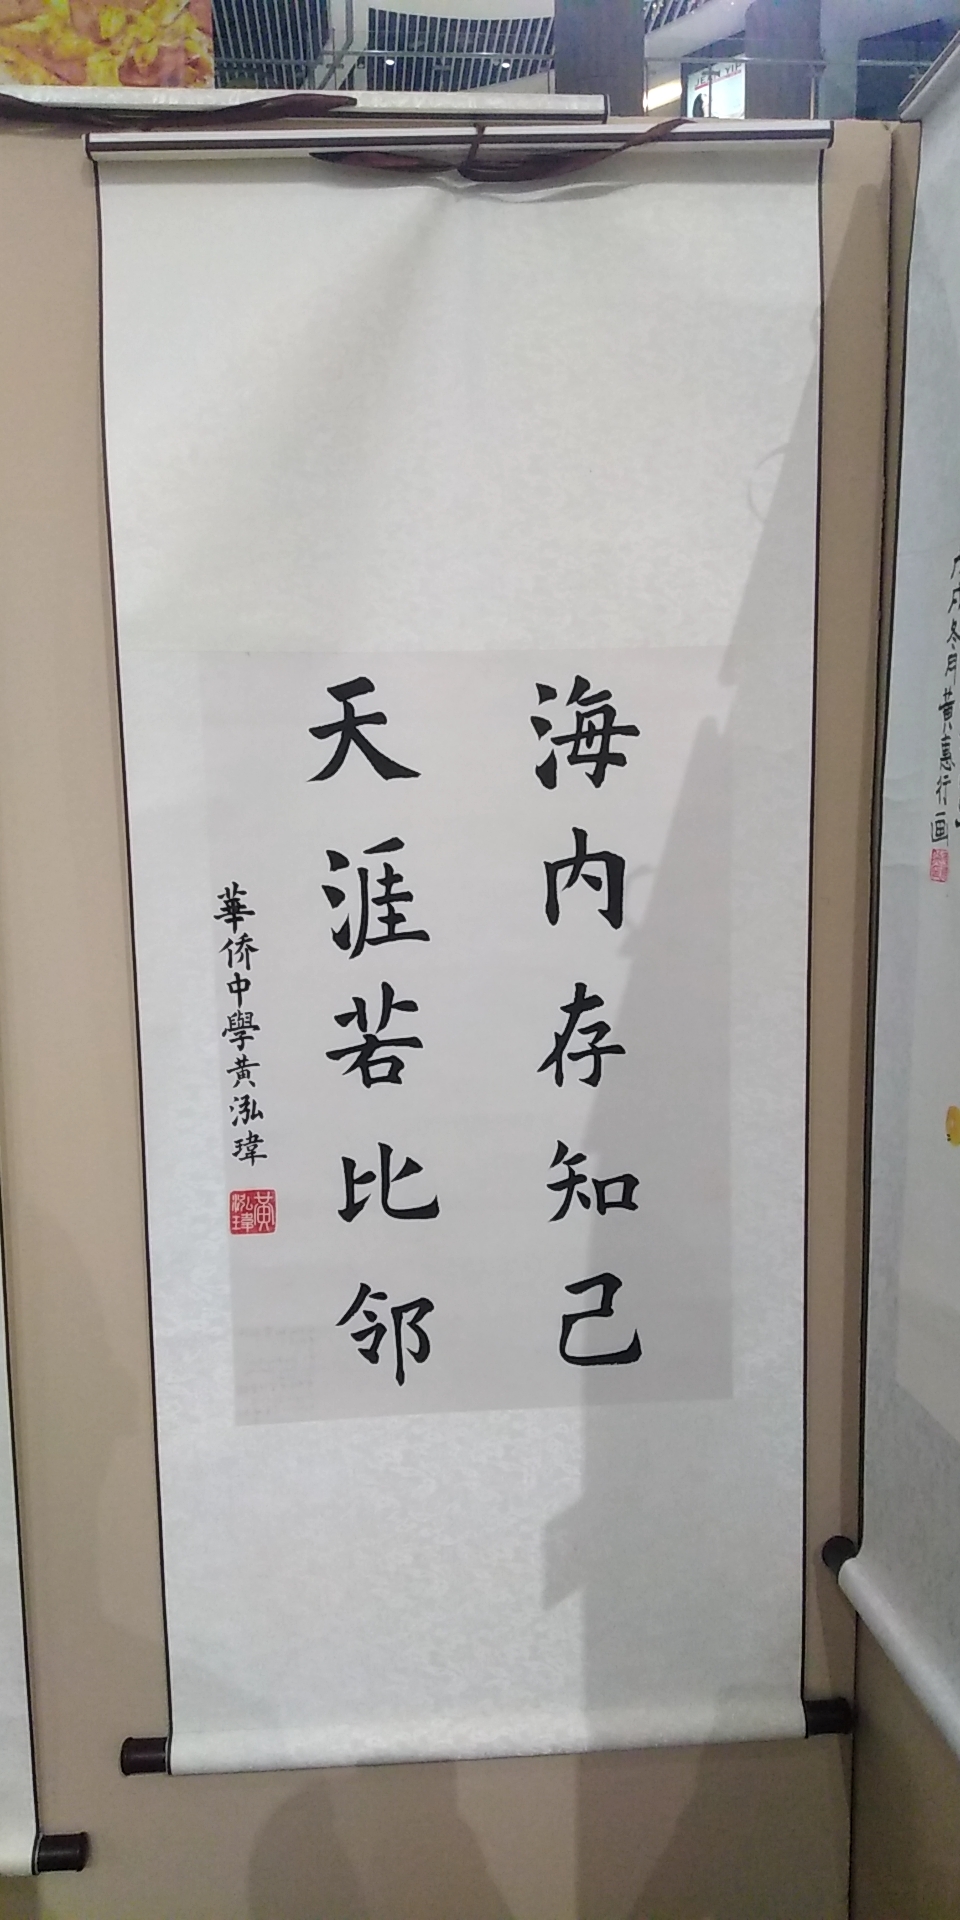 海内存知己
天涯若比邻
華侨中學黃泓瑋
黃泓瑋
冬月黃惠行画